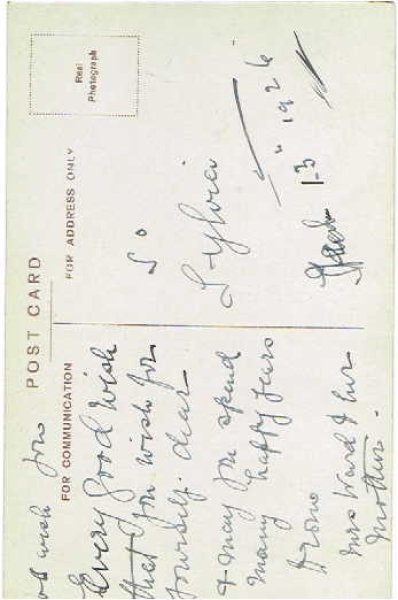 wish you
POST CARD
Real
Photograph
FOR COMMUNICATION
FOR ADDRESS ONLY
Every good wish
that you wish for
yourself. dear
& may you spend
many happy years
from
Mrs Ward & her
Mother.
To
13 " 1926